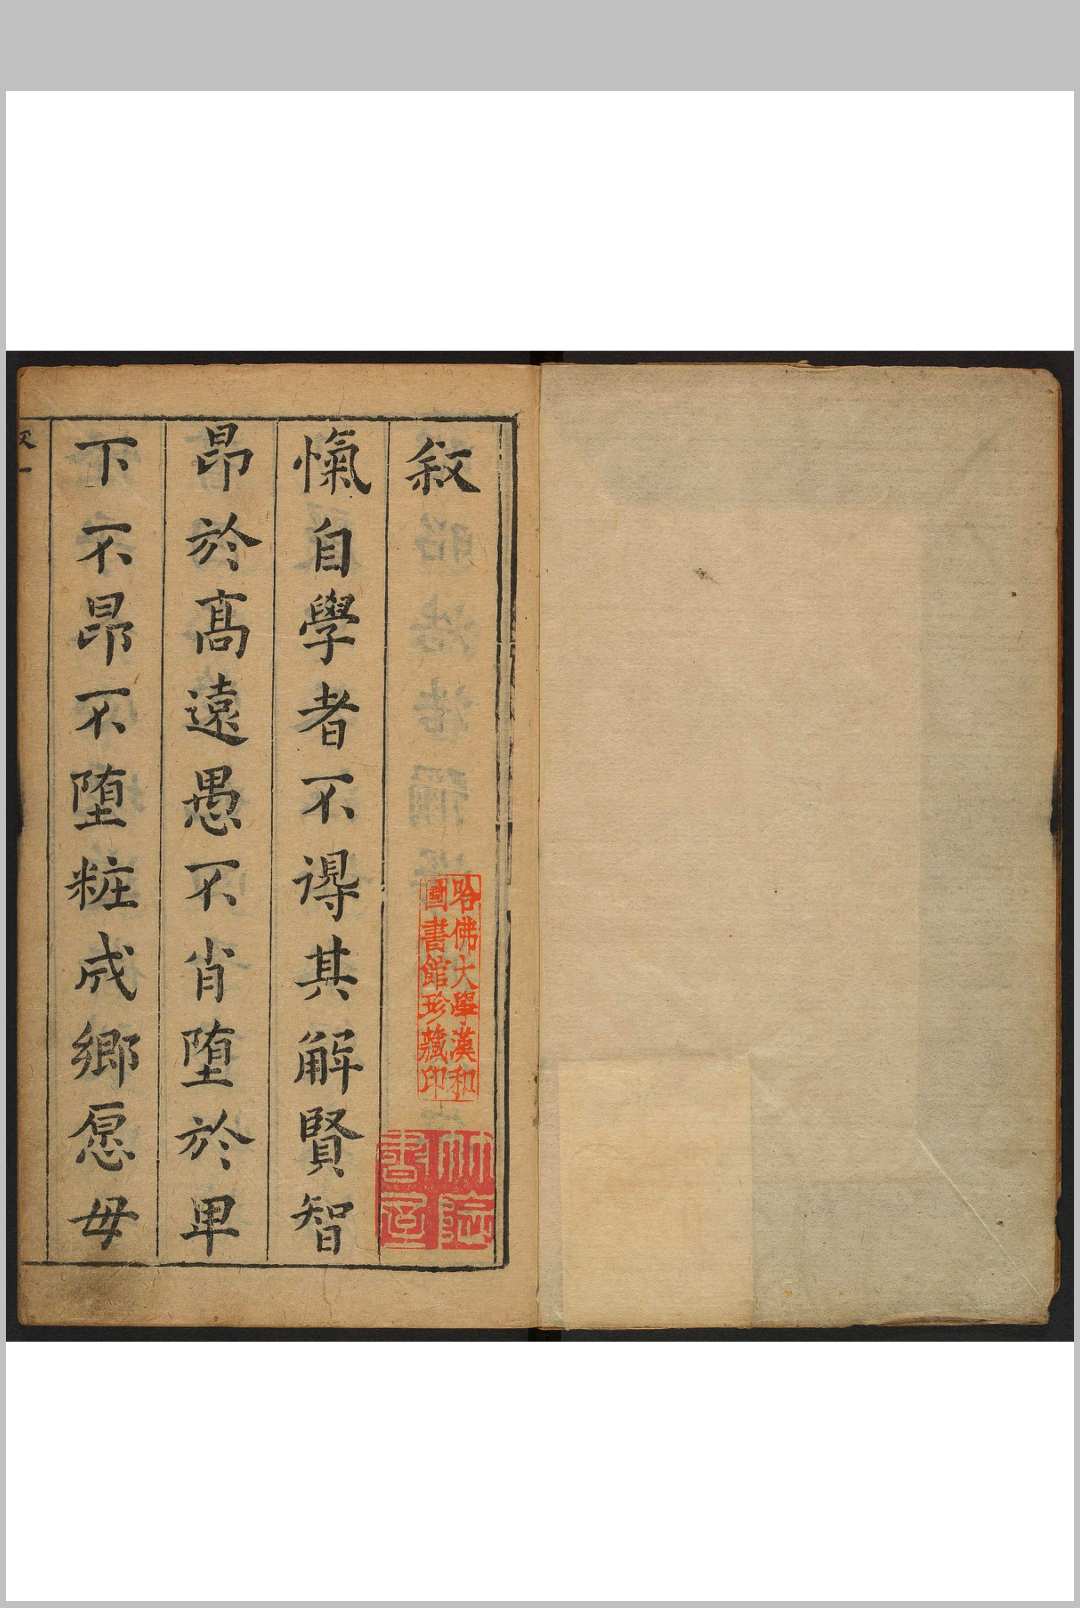 敘
愾自學者不得其解賢智
昂於高遠愚不肖墮於卑
下不昂不墮粧成鄉愿毋
哈佛大學漢和
圖書館珍藏印